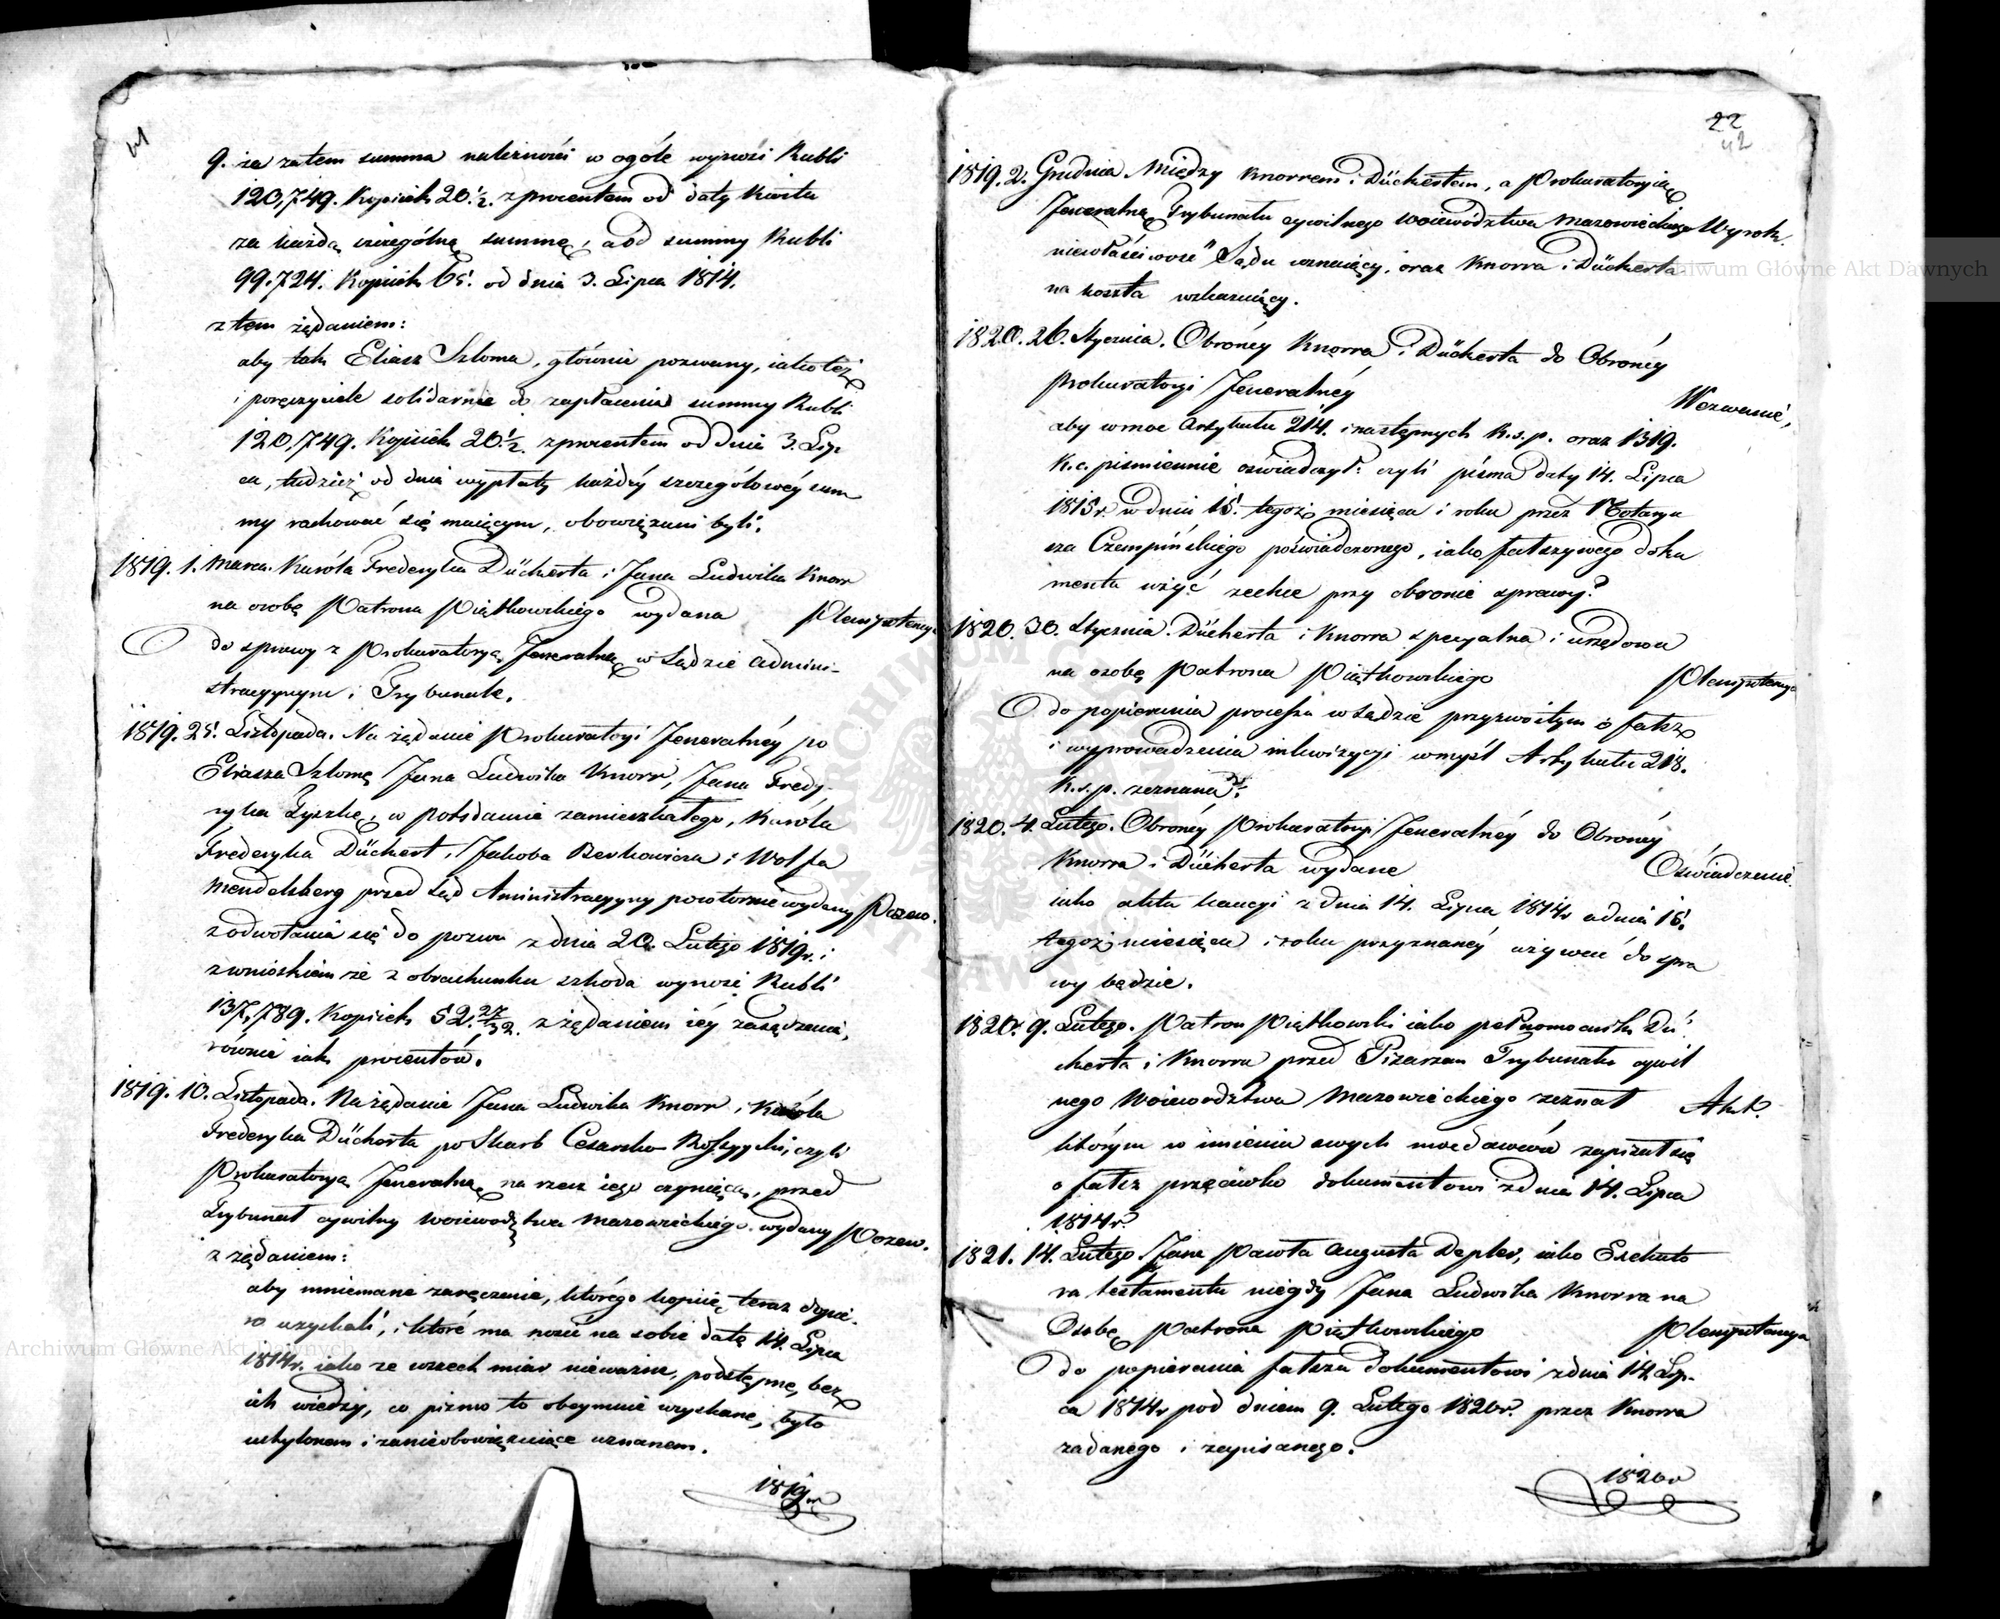 41
9. że zatem summa należności w ogóle wynosi Rubli
120,749. Kopiiek 20 1/2. z procentem od daty kwitu
za każdą szczególną summę, a od summy Rubli
99.724. Kopiiek 65. od dnia 3. Lipca 1814.
z tem żądaniem:
aby tak Eliasz Szloma, głównie pozwany, iako też
i poręczyciele solidarnie do zapłacenia summy Rubli
120,749. Kopiiek 20 1/2. z procentem od dnia 3. Lip
ca, tudzież od dnia wypłaty każdéy szczegółowéy sum
my rachować się maiącym, obowiązani byli.
1819. 1. Marca. Karóla Frederyka Dückerta i Jana Ludwika Knorr
na osobę Patrona Piątkowskiego wydana Plenipotencya
do sprawy z Prokuratoryą Jeneralną w Sądzie Admini-
stracyynym i Trybunale.
1819. 25. Listopada. Na żądanie Prokuratoryi Jeneralnéy po
Eliasza Szlomę Jana Ludwika Knorr, Jana Fredy-
ryka Tyszkę, w Potsdamie zamieszkałego, Karóla
Frederyka Dückert, Jakoba Berkowicza i Wolfa
Mendelsberg przed Sąd Aministracyyny powtornie wydany Pozew.
z odwołania się do pozwu z dnia 20. Lutego 1819r. i
z wnioskiem że z obrachunku szkoda wynosi Rubli
137,789. Kopiiek 52. 27/32. z żądaniem iéy zasądzenia,
równie iak procentów.
1819. 10. Listopada. Na żądanie Jana Ludwika Knorr i Karóla
Frederyka Dückerta po Skarb Cesarsko Rossyyski, czyli
Prokuratoryą Jeneralną na rzecz iego czyniącą, przed
Trybunał cywilny Woiewodztwa Mazowieckiego. wydany Pozew.
z żądaniem:
aby mniemane zaręczenie, którego kopiię teraz dopié-
ro uzyskali, i które ma nosić na sobie datę 14. Lipca
1814r. iako ze wszech miar nieważne, podstępne, bez
ich wiedzy, co pismo to obeymuie uzyskane, było
uchylonem i za nieobowięzuiące uznanem.
1819r
22
42
1819. 2. Grudnia. Między Knorrem i Dückertem, a Prokuratoryią
Jeneralną Trybunału cywilnego Woiewództwa Mazowieckiego Wyrok.
niewłaściwość Sądu uznaiący, oraz Knorra i Dückerta
na koszta wskazuiący.
1820. 26. Stycznia. Obrońcy Knorra i Dückerta do Obrońcy
Prokuratoryi Jeneralnéy Wezwanie,
aby w moc Artykułu 214. i następnych K.s.p. oraz 1319.
K.c. piśmiennie oświadczył: czyli pisma daty 14. Lipca
1813r. w dniu 15. tegoż miesiąca i roku przez Notaryu
sza Czempińskiego poświadczonego, iako fałszywego doku
mentu użyć zechce przy obronie sprawy?
1820. 30. Stycznia. Dückerta i Knorra specyalna i urzędowa
na osobę Patrona Piątkowskiego Plenipotencya
do popierania processu w Sądzie przyzwoitym o fałsz
i wyprowadzenia inkwizycyi w myśl Artykułu 218.
K.s.p. zeznana.
1820. 4. Lutego. Obrońcy Prokuratoryi Jeneralnéy do Obrońcy
Knorra i Dückerta wydane Oświadczenie.
iako aktu kaucyi z dnia 14. Lipca 1814r a dnia 15.
tegoż miesiąca i roku przyznanéy używać do spra
wy będzie.
1820. 9. Lutego. Patron Piątkowski iako pełnomocnik Dü
ckerta i Knorra przed Pisarzem Trybunału cywil
nego Woiewodztwa Mazowieckiego zeznał Akt.
którym w imieniu swych mocdawców zapisał się
o fałsz przeciwko dokumentowi z dnia 14. Lipca
1814r.
1821. 14. Lutego Jana Pawła Augusta Depler, iako Exekuto
ra testamentu niegdy Jana Ludwika Knorra na
Osobę Patrona Piątkowskiego Plenipotencya
do popierania fałszu dokumentowi z dnia 14. Lip-
ca 1814r pod dniem 9. Lutego 1820r. przez Knorra
zadanego i zapisanego.
1820r
Archiwum Główne Akt Dawnych
Archiwum Główne Akt Dawnych